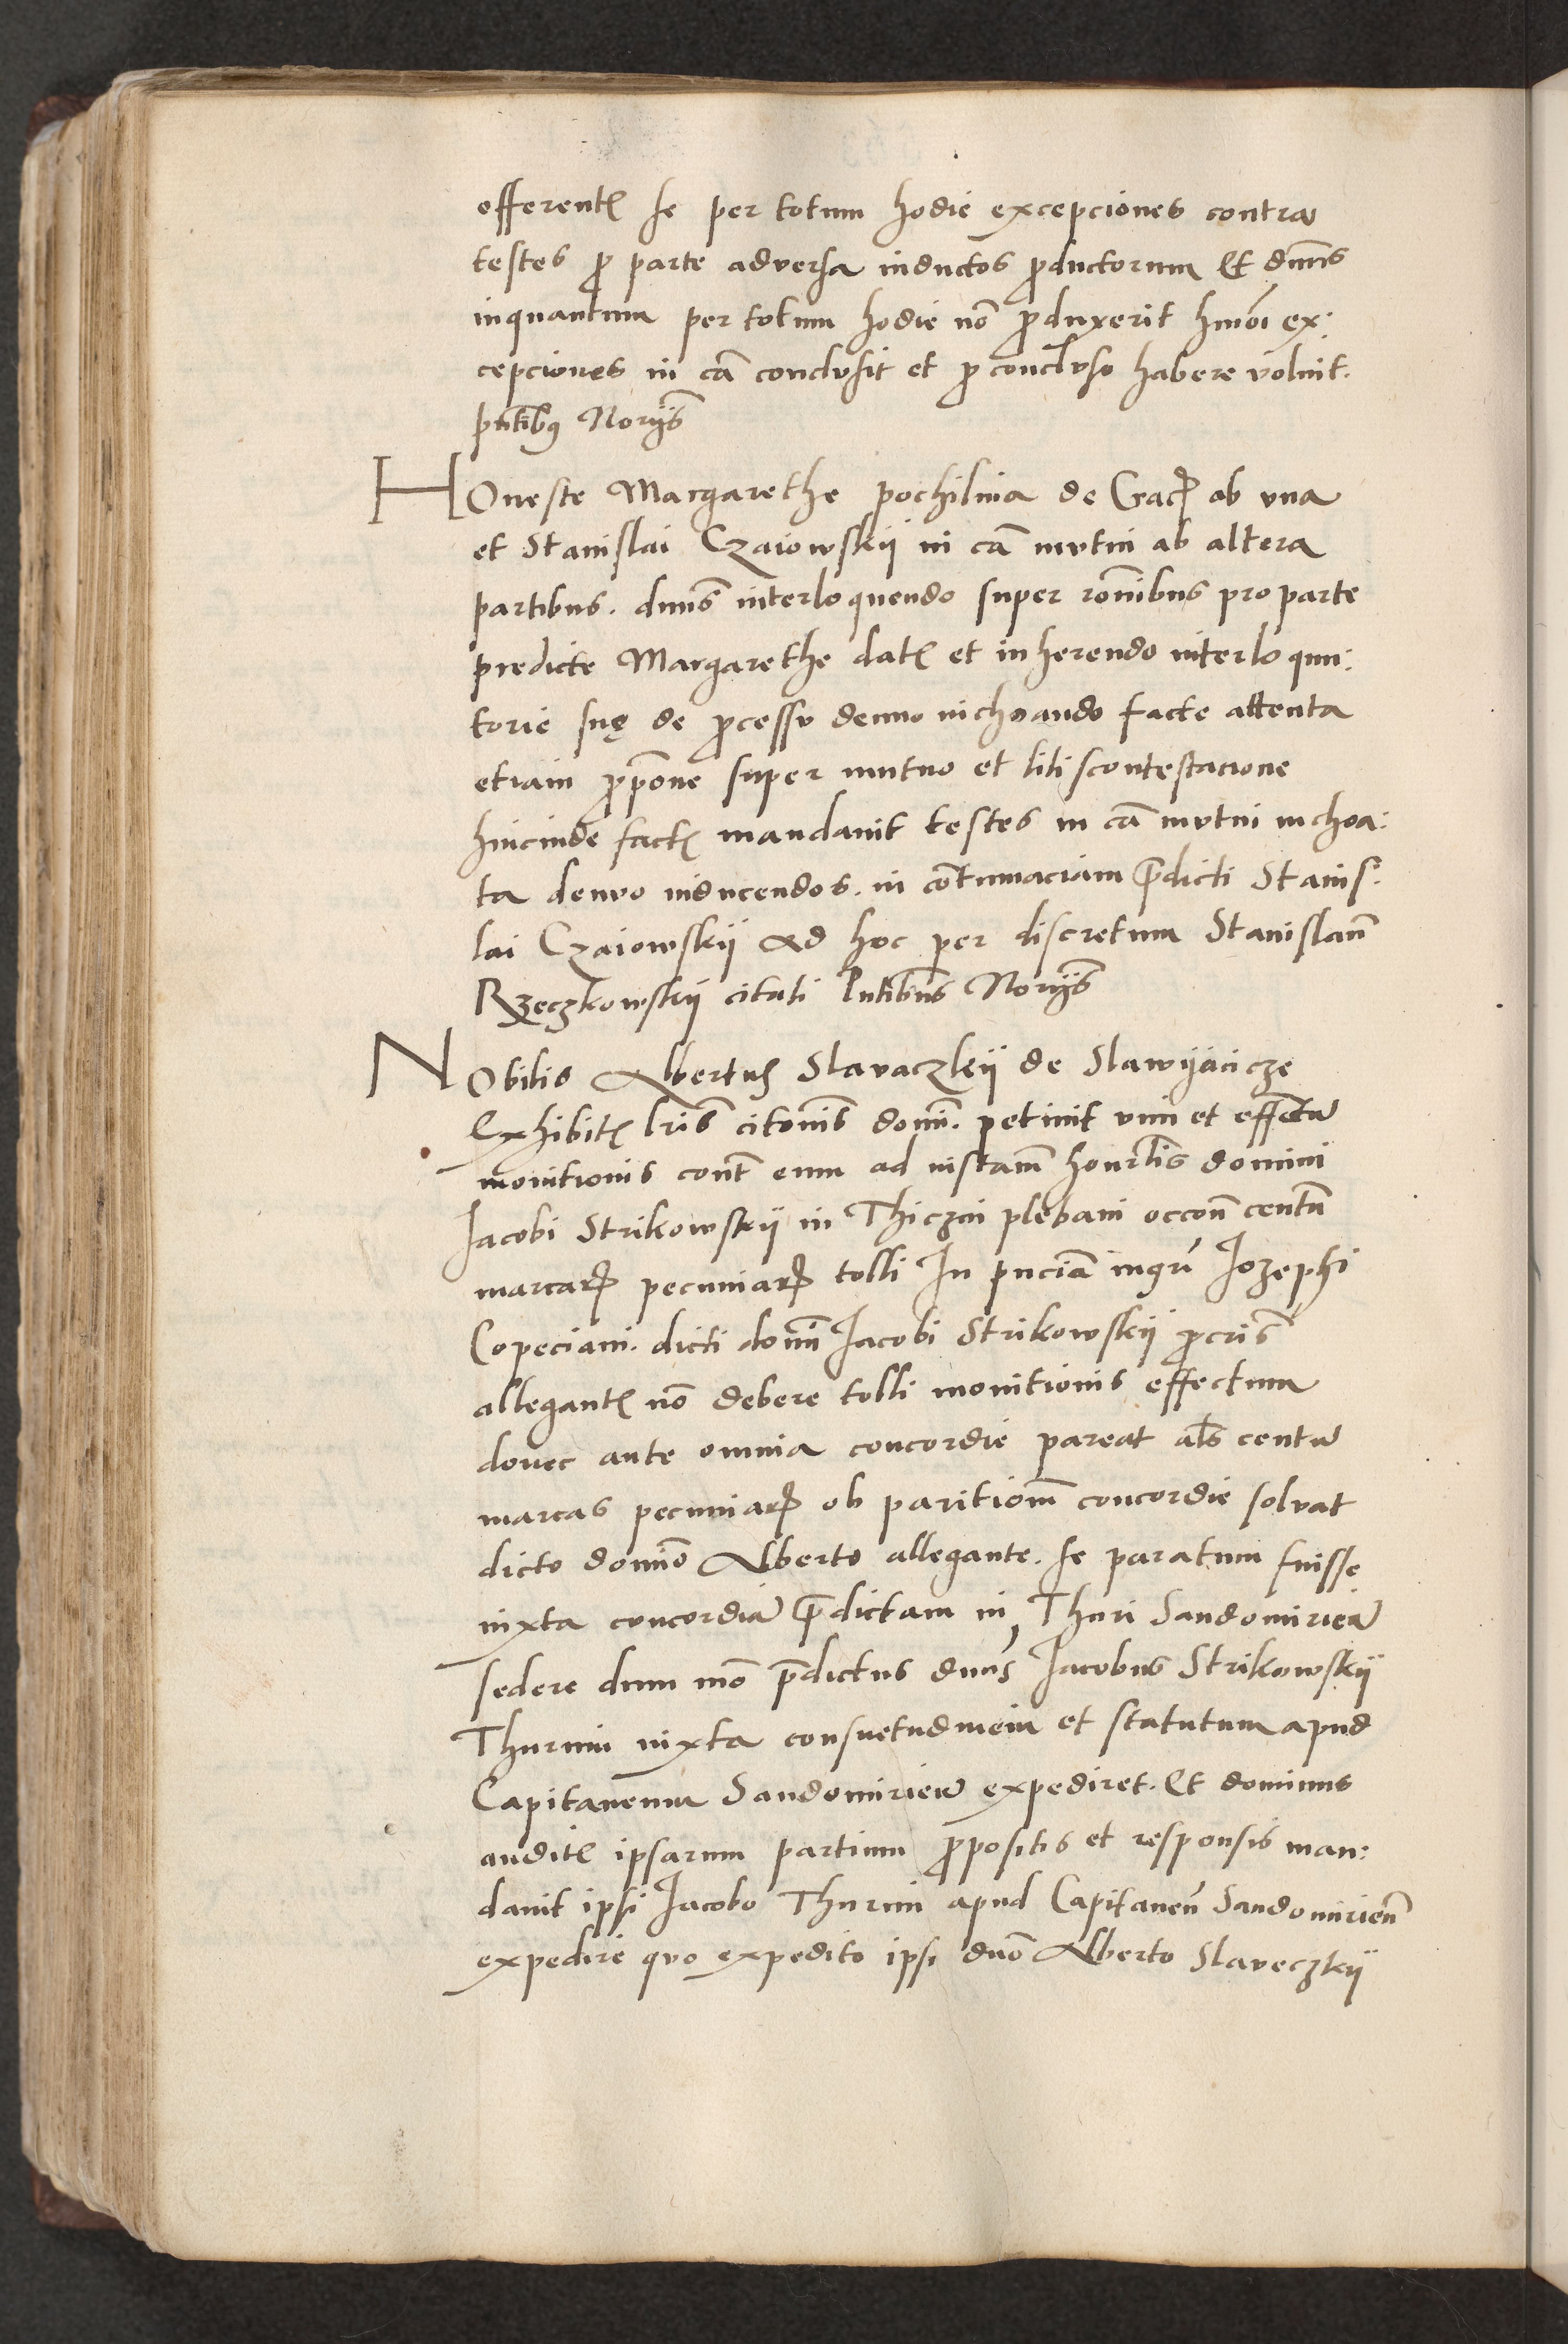 offerentꝭ se per totum hodie excepciones contra
testes ꝓ parte adversa inductos ꝓductorum Et dnūs
inquantum per totum hodie nō ꝓduxerit hmōi ex:
cepciones in cā conclusit et ꝓ concluso habere voluit.
pntībꝫ Norijs
HOneste Margarethe pochilnia de Cracꝫ ab vna
et Stanislai Czaiowskij in cā mutui ab altera
partibus. dnūs interloquendo super rōnibus pro parte
predicte Margarethe datꝭ et inherendo interloqun:
torie suę de ꝓcessu denuo inchoando facte attenta
etiam ꝓpōne super mutuo et litiscontestacione
hincinde factꝭ mandauit testes in cā mutui inchoa:
ta denuo inducendos. in cōtumaciam p̄dicti Stanis:
lai Czaiowskij ad hoc per discretum Stanislaū
Rzeczkowskij citati Pntībus Norijs
NObilis Albertus Slavaczkij de Slawijacicze
Exhibitꝭ lrīs citōnis domī. petiuit vim et effectū
monitionis cont̄ eum ad instām honrlīs domini
Jacobi Strikowskij in Thiczin plebani occōn centū
marcaꝝ pecuniaꝝ tolli In pnciā mgrī Jozephi
Copeciani. dicti domī Jacobi Strikowskij ꝓcrīs
allegantꝭ nō debere tolli monitionis effectum
donec ante omnia concordie pareat als centū
marcas pecuniaꝝ ob paritiōm concordie soluat
dicto domīo Alberto allegante. se paratum fuisse
iuxta concordiā p̄dictam in Thuri Sandomirieñ
sedere dum mō p̄dictus dnūs Jacobus Strikowskij
Thurrim iuxta consuetudinem et statutum apud
Capitaneum Sandomirieñ expediret. Et dominus
auditꝭ ipsarum partium ꝓpositis et responsis man:
dauit ipsi Jacobo Thurrim apud Capitaneū Sandomirieñ
expedire quo expedito ipsi dnō Alberto Slaveczkij